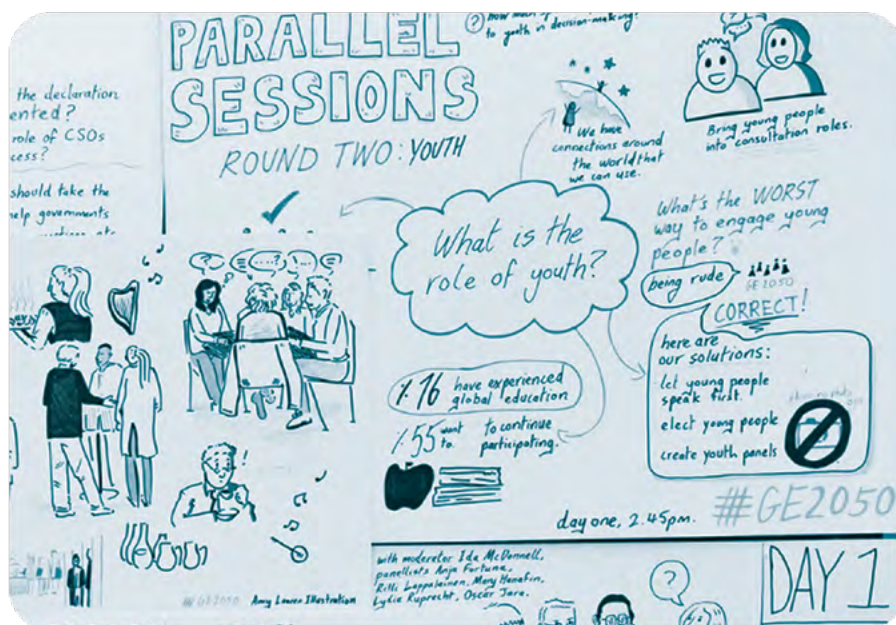 to youth in decision-making?
PARALLEL
SESSIONS
ROUND TWO: YOUTH
the declaration
ented?
role of CSOs
cess?
should take the
help governments
We have
connections around
the world that
we can use.
Bring young people
into consultation roles.
What is the
role of youth?
What's the WORST
way to engage young
people?
being rude
GE2050
CORRECT!
here are
our solutions:
let young people
speak first.
elect young people
create youth panels
% 76 have experienced
global education
% 55 want to continue
to participating.
day one, 2.45pm.
#GE2050
#GE2050 Amy Lauren Illustration
with moderator Ida McDonnell,
panellists Anja Fortuna,
Rilli Lappalainen, Mary Hanafin,
Lydia Ruprecht, Oscar Jara.
DAY 1